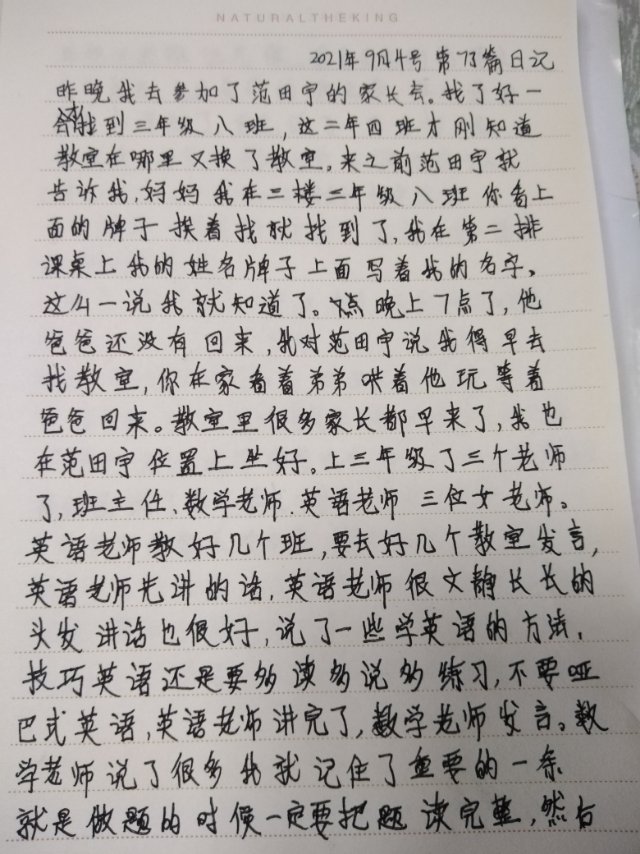 NATURALTHEKING
2021年9月4号 第73篇日记
昨晚我去参加了范田宇的家长会。我了好一
会找到三年级八班,这二年四班才刚知道
教室在哪里又换了教室。来之前范田宇就
告诉我,妈妈我在三楼三年级八班你看上
面的牌子挨着找就找到了,我在第二排
课桌上我的姓名牌子上面写着我的名字。
这么一说我就知道了。晚上7点了,他
爸爸还没有回来,我对范田宇说我得早去
找教室,你在家看着弟弟哄着他玩等着
爸爸回来。教室里很多家长都早来了,我也
在范田宇位置上坐好。上三年级了三个老师
了,班主任、数学老师、英语老师 三位女老师。
英语老师教好几个班,要去好几个教室发言,
英语老师先讲的话,英语老师很文静长长的
头发讲话也很好,说了一些学英语的方法,
技巧英语还是要多读多说多练习,不要哑
巴式英语,英语老师讲完了,数学老师发言。数
学老师说了很多我就记住了重要的一条
就是做题的时候一定要把题读完整,然后